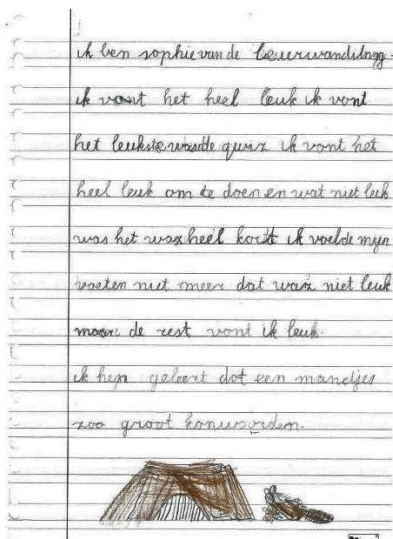 ik ben sophie van de beverwandeling.
ik vont het heel leuk ik vont
het leukste was de quiz ik vont het
heel leuk om te doen en wat niet leuk
was het wax heel kort ik voelde mijn
voeten niet meer dat wax niet leuk
maar de rest vont ik leuk.
ik hep geleert dat een mandjes
zoo groot kon worden.